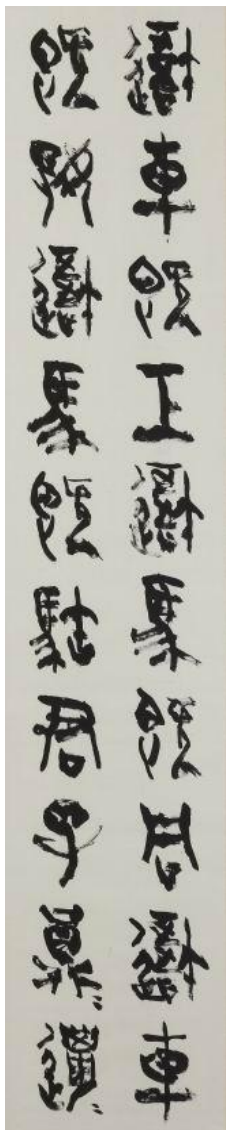 吾車既工吾馬既同吾車
既好吾馬既君子員〻邋〻